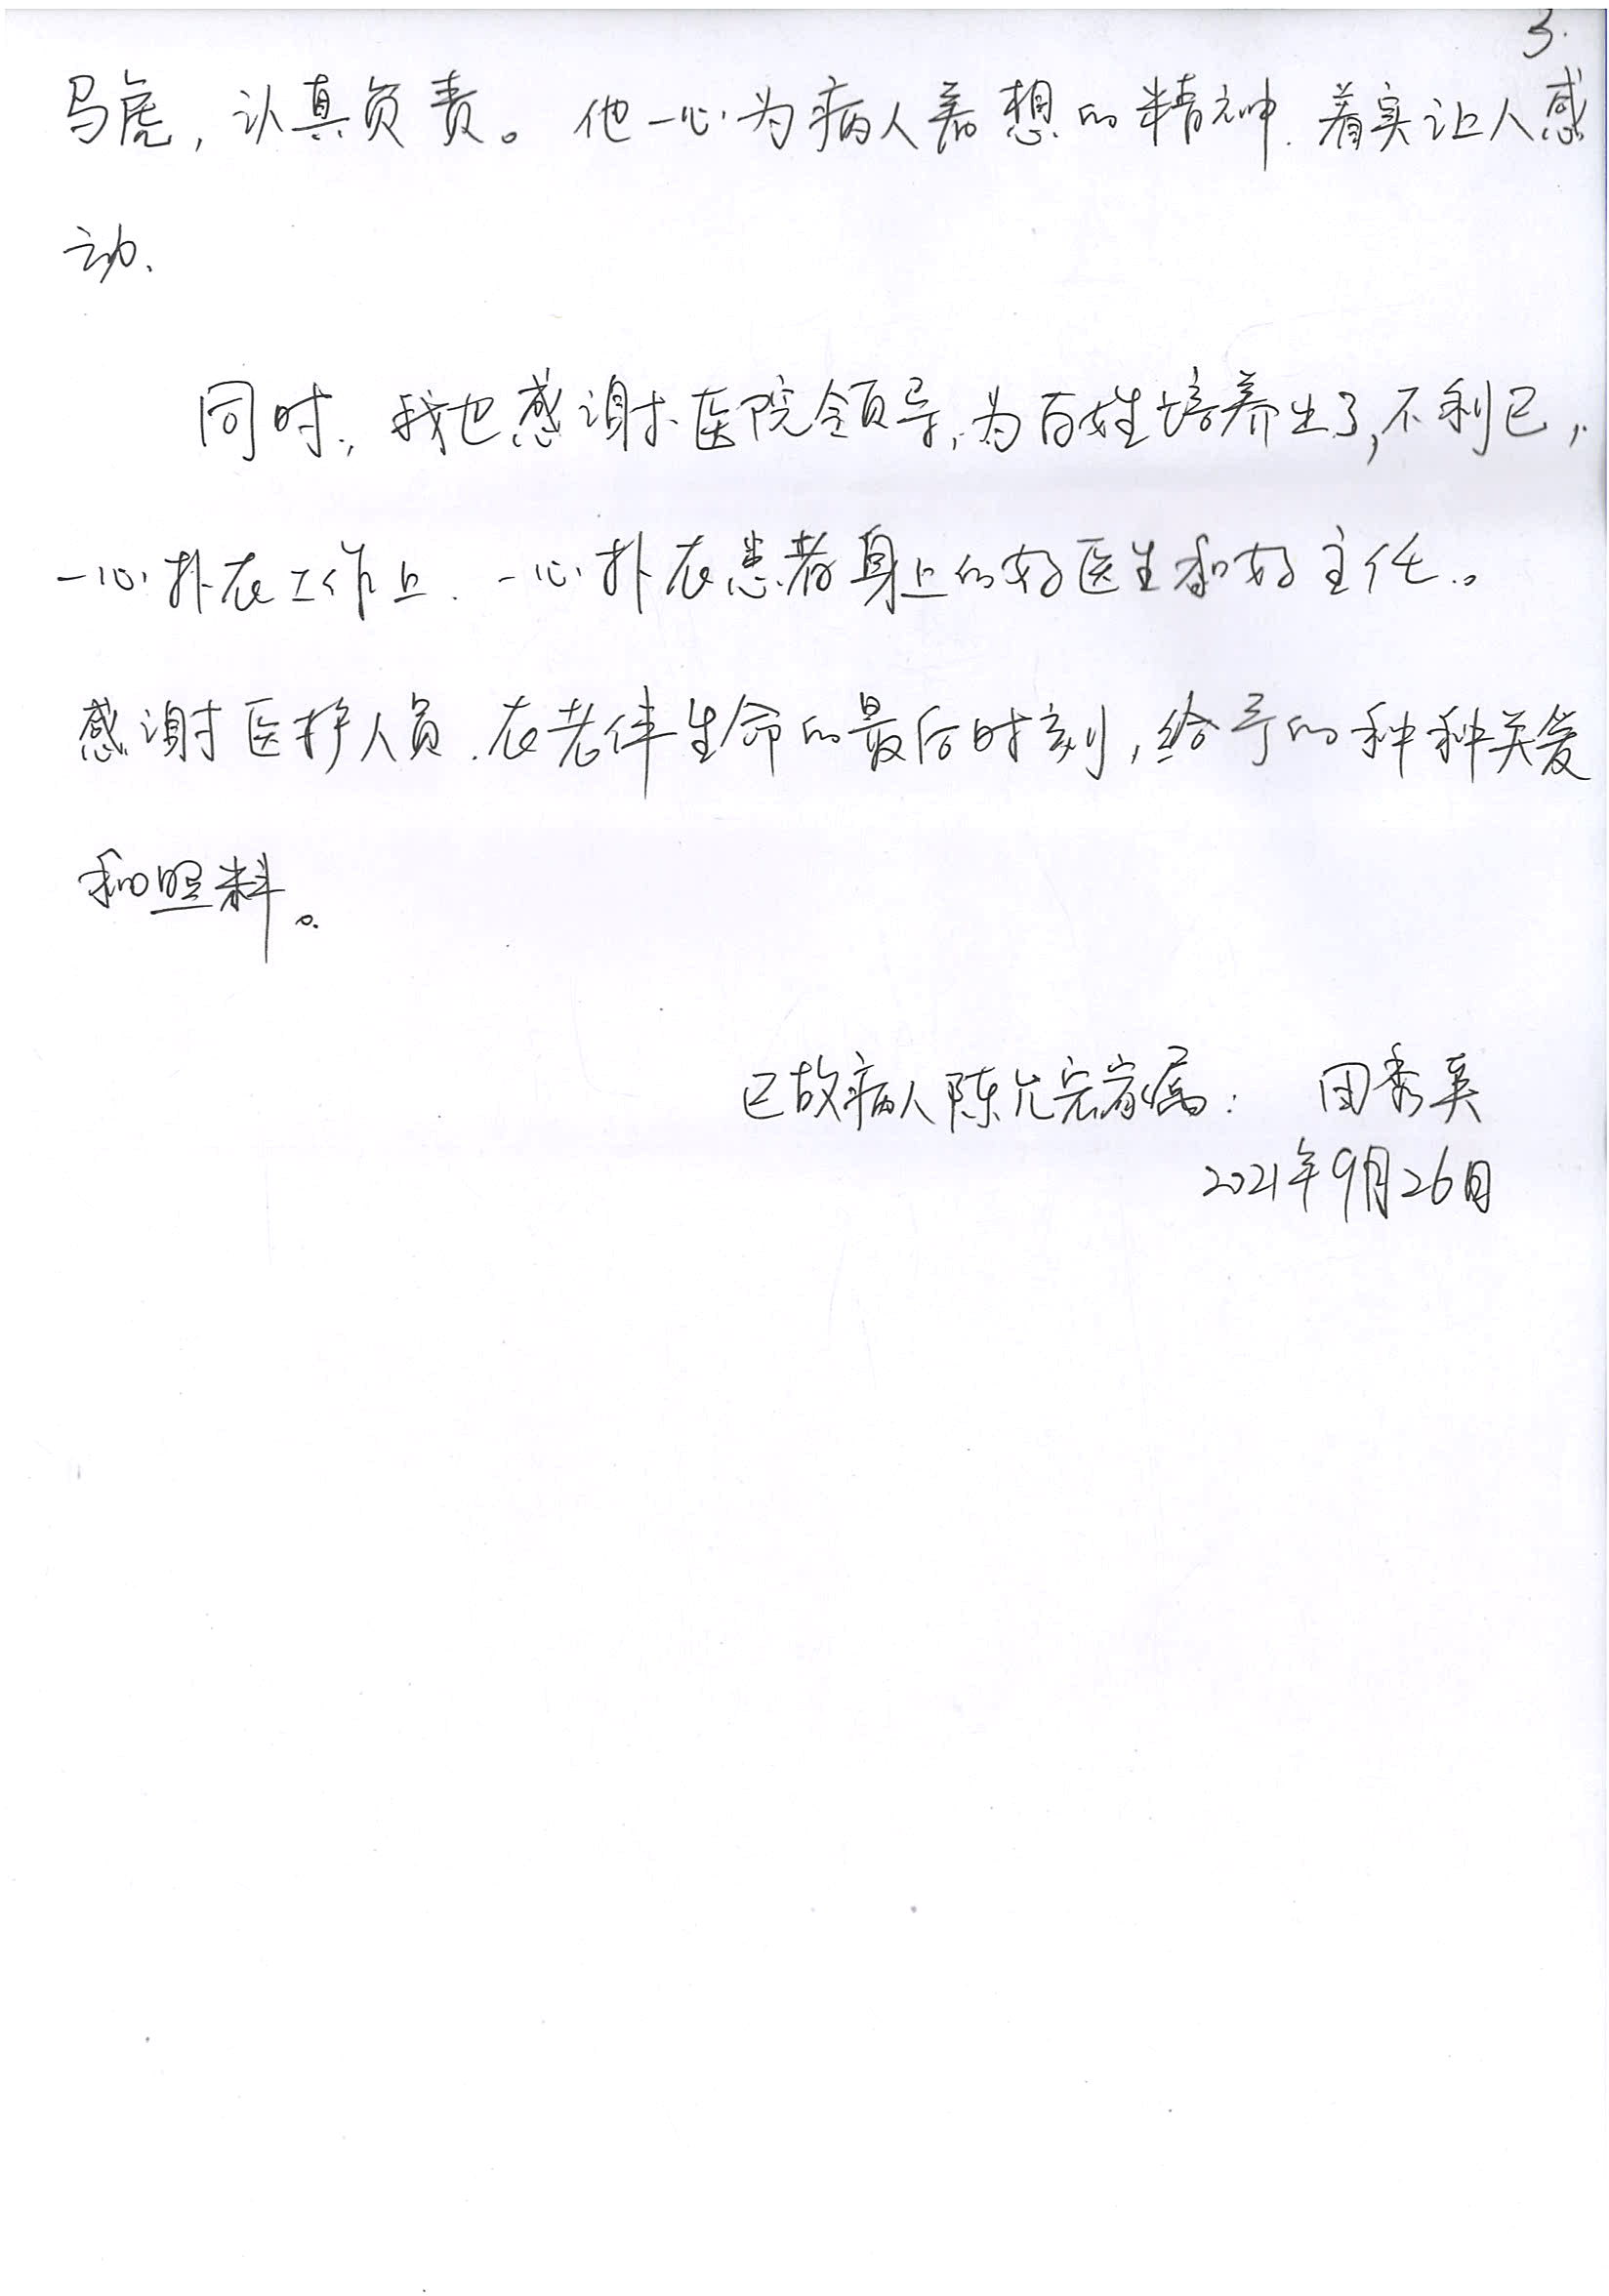 3.
马虎，认真负责。他一心为病人着想的精神.着实让人感
动.
同时，我也感谢医院领导,为百姓培养出了,不利己,
一心扑在工作上.一心扑在患者身上的好医生和好主任。
感谢医护人员.在老伴生命的最后时刻,给予的种种关爱
和照料。
已故病人陈允宏家属: 田秀英
2021年9月26日